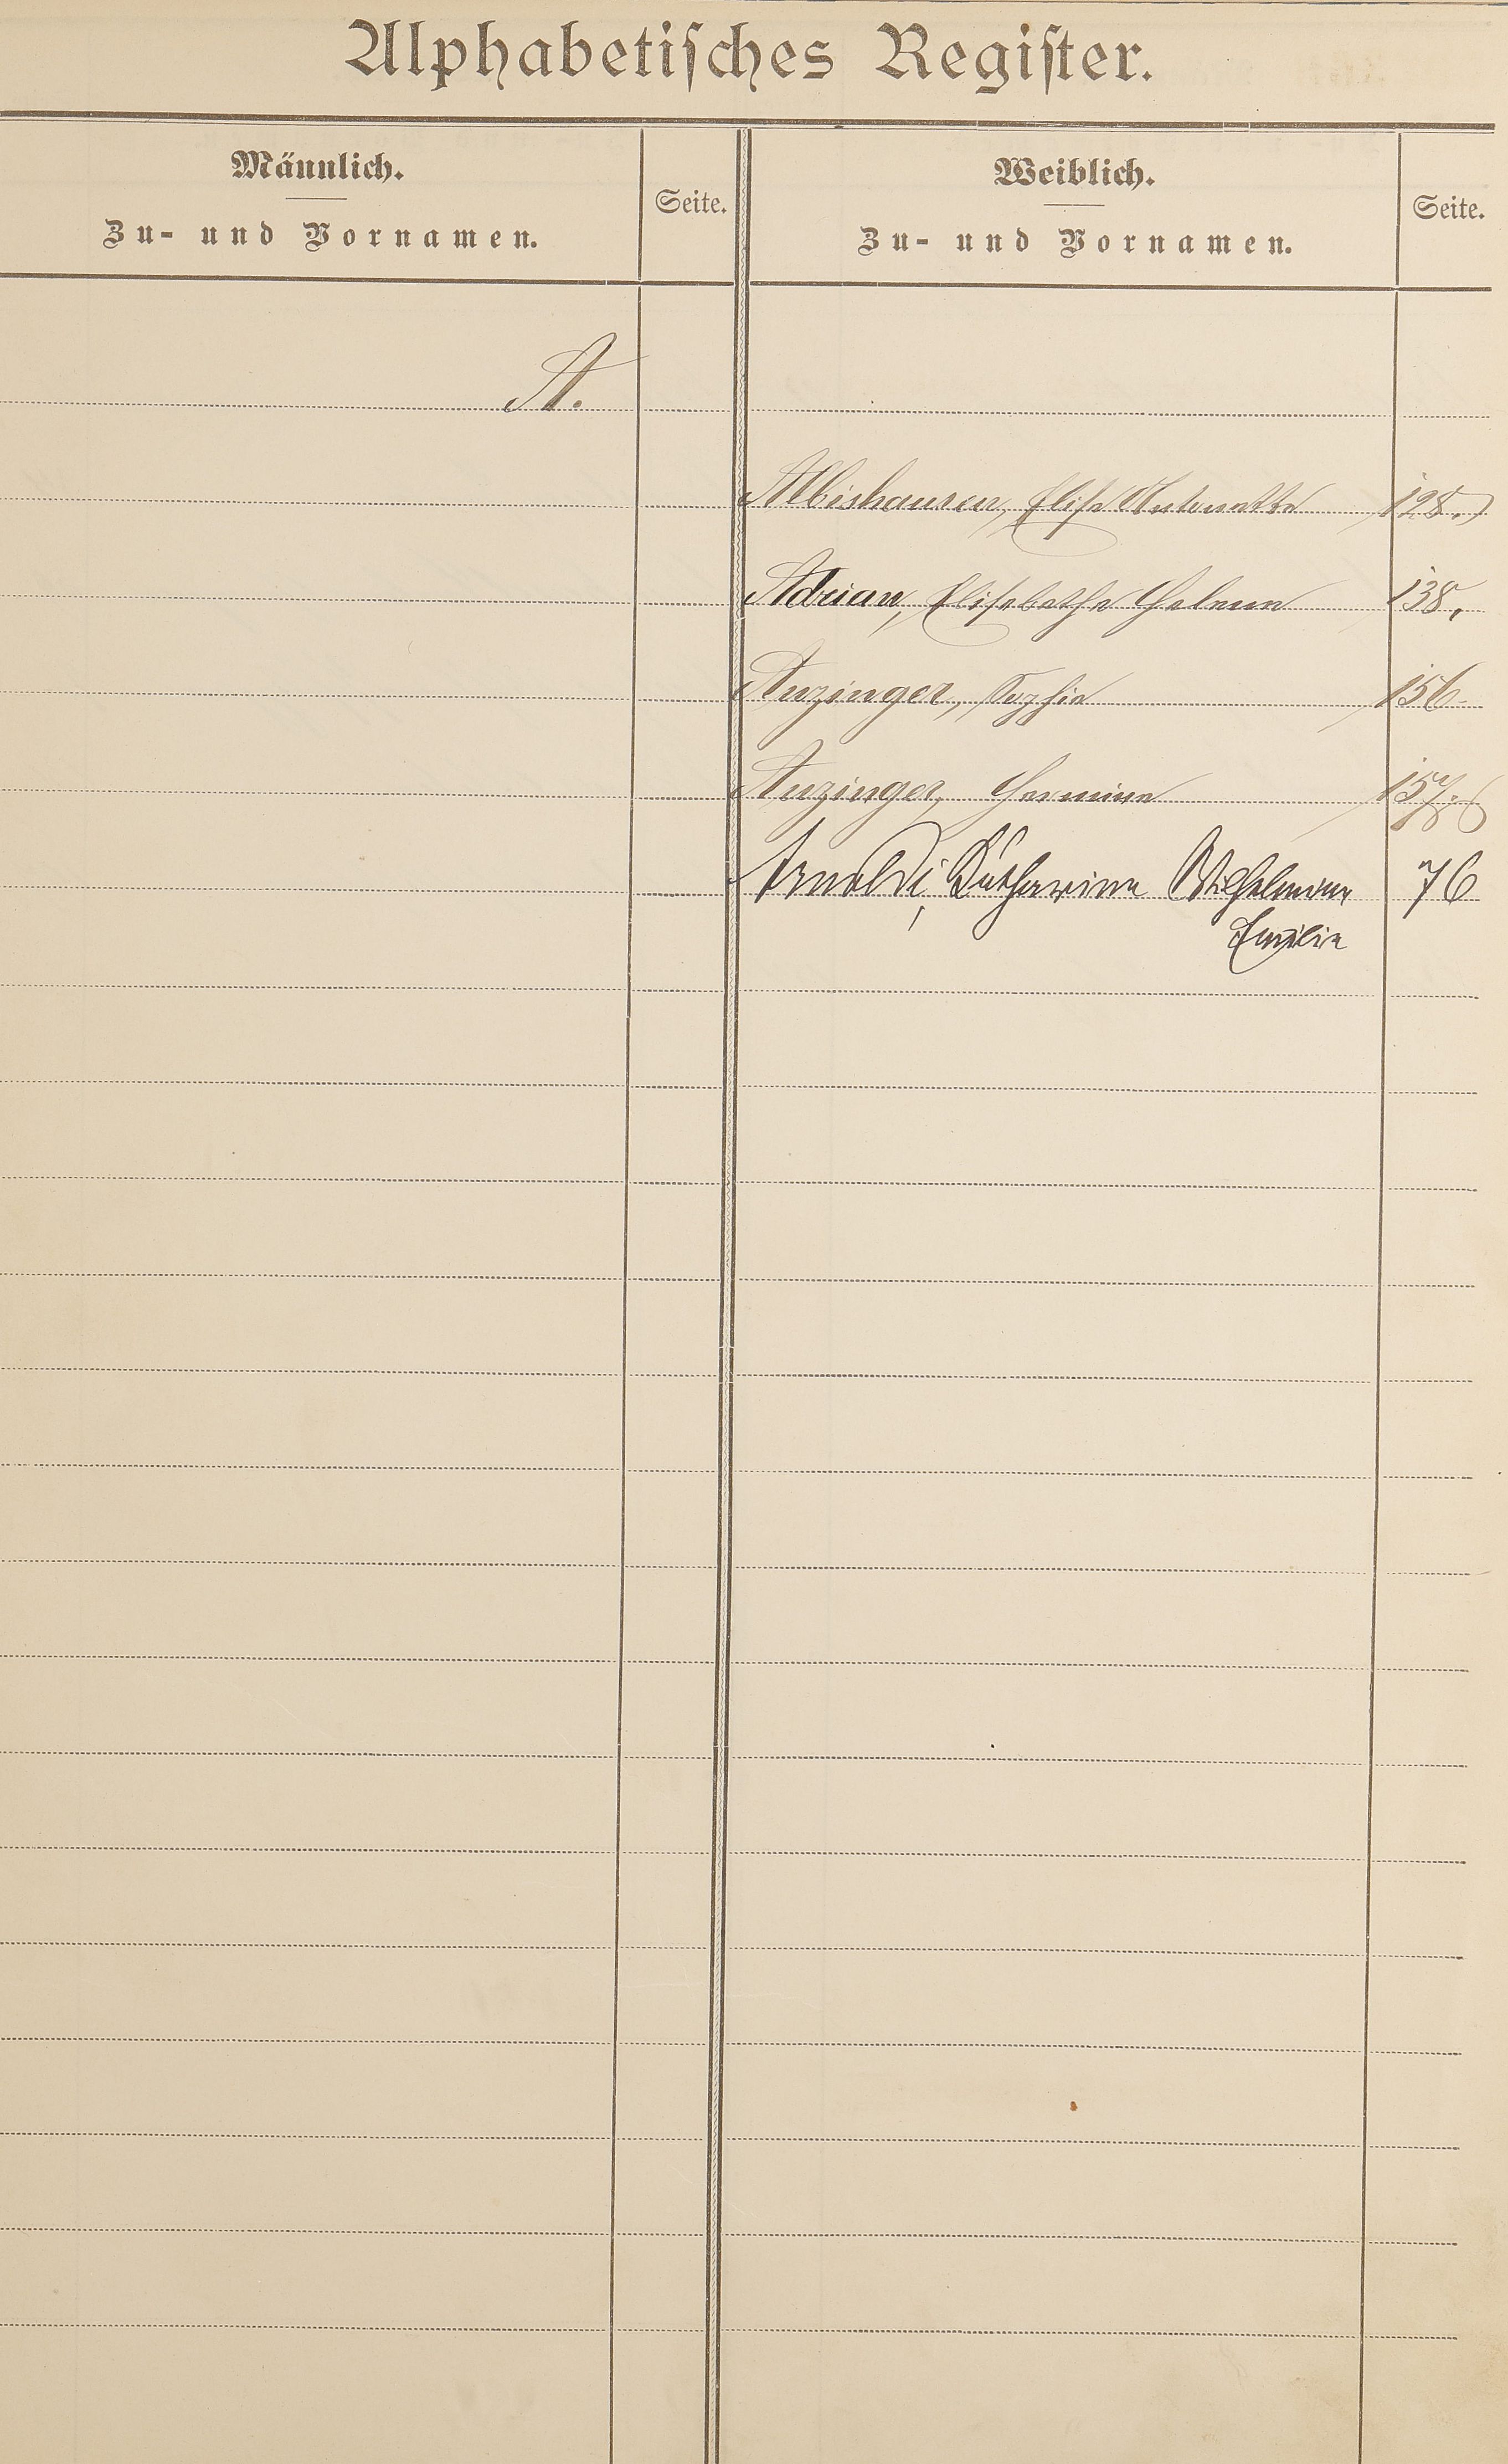 Alphabetisches Register.
Männlich.
Zu- und Vornamen.
Seite.
Weiblich.
Zu- und Vornamen.
Seite.
A.
Albishausen, Elise Antonette 128.
Adrian, Elisabethe Helene 138.
Anzinger, Sophie 156.
Anzinger, Hermine 157.
Arnoldi, Katharina Wilhelmine 76
Emilie